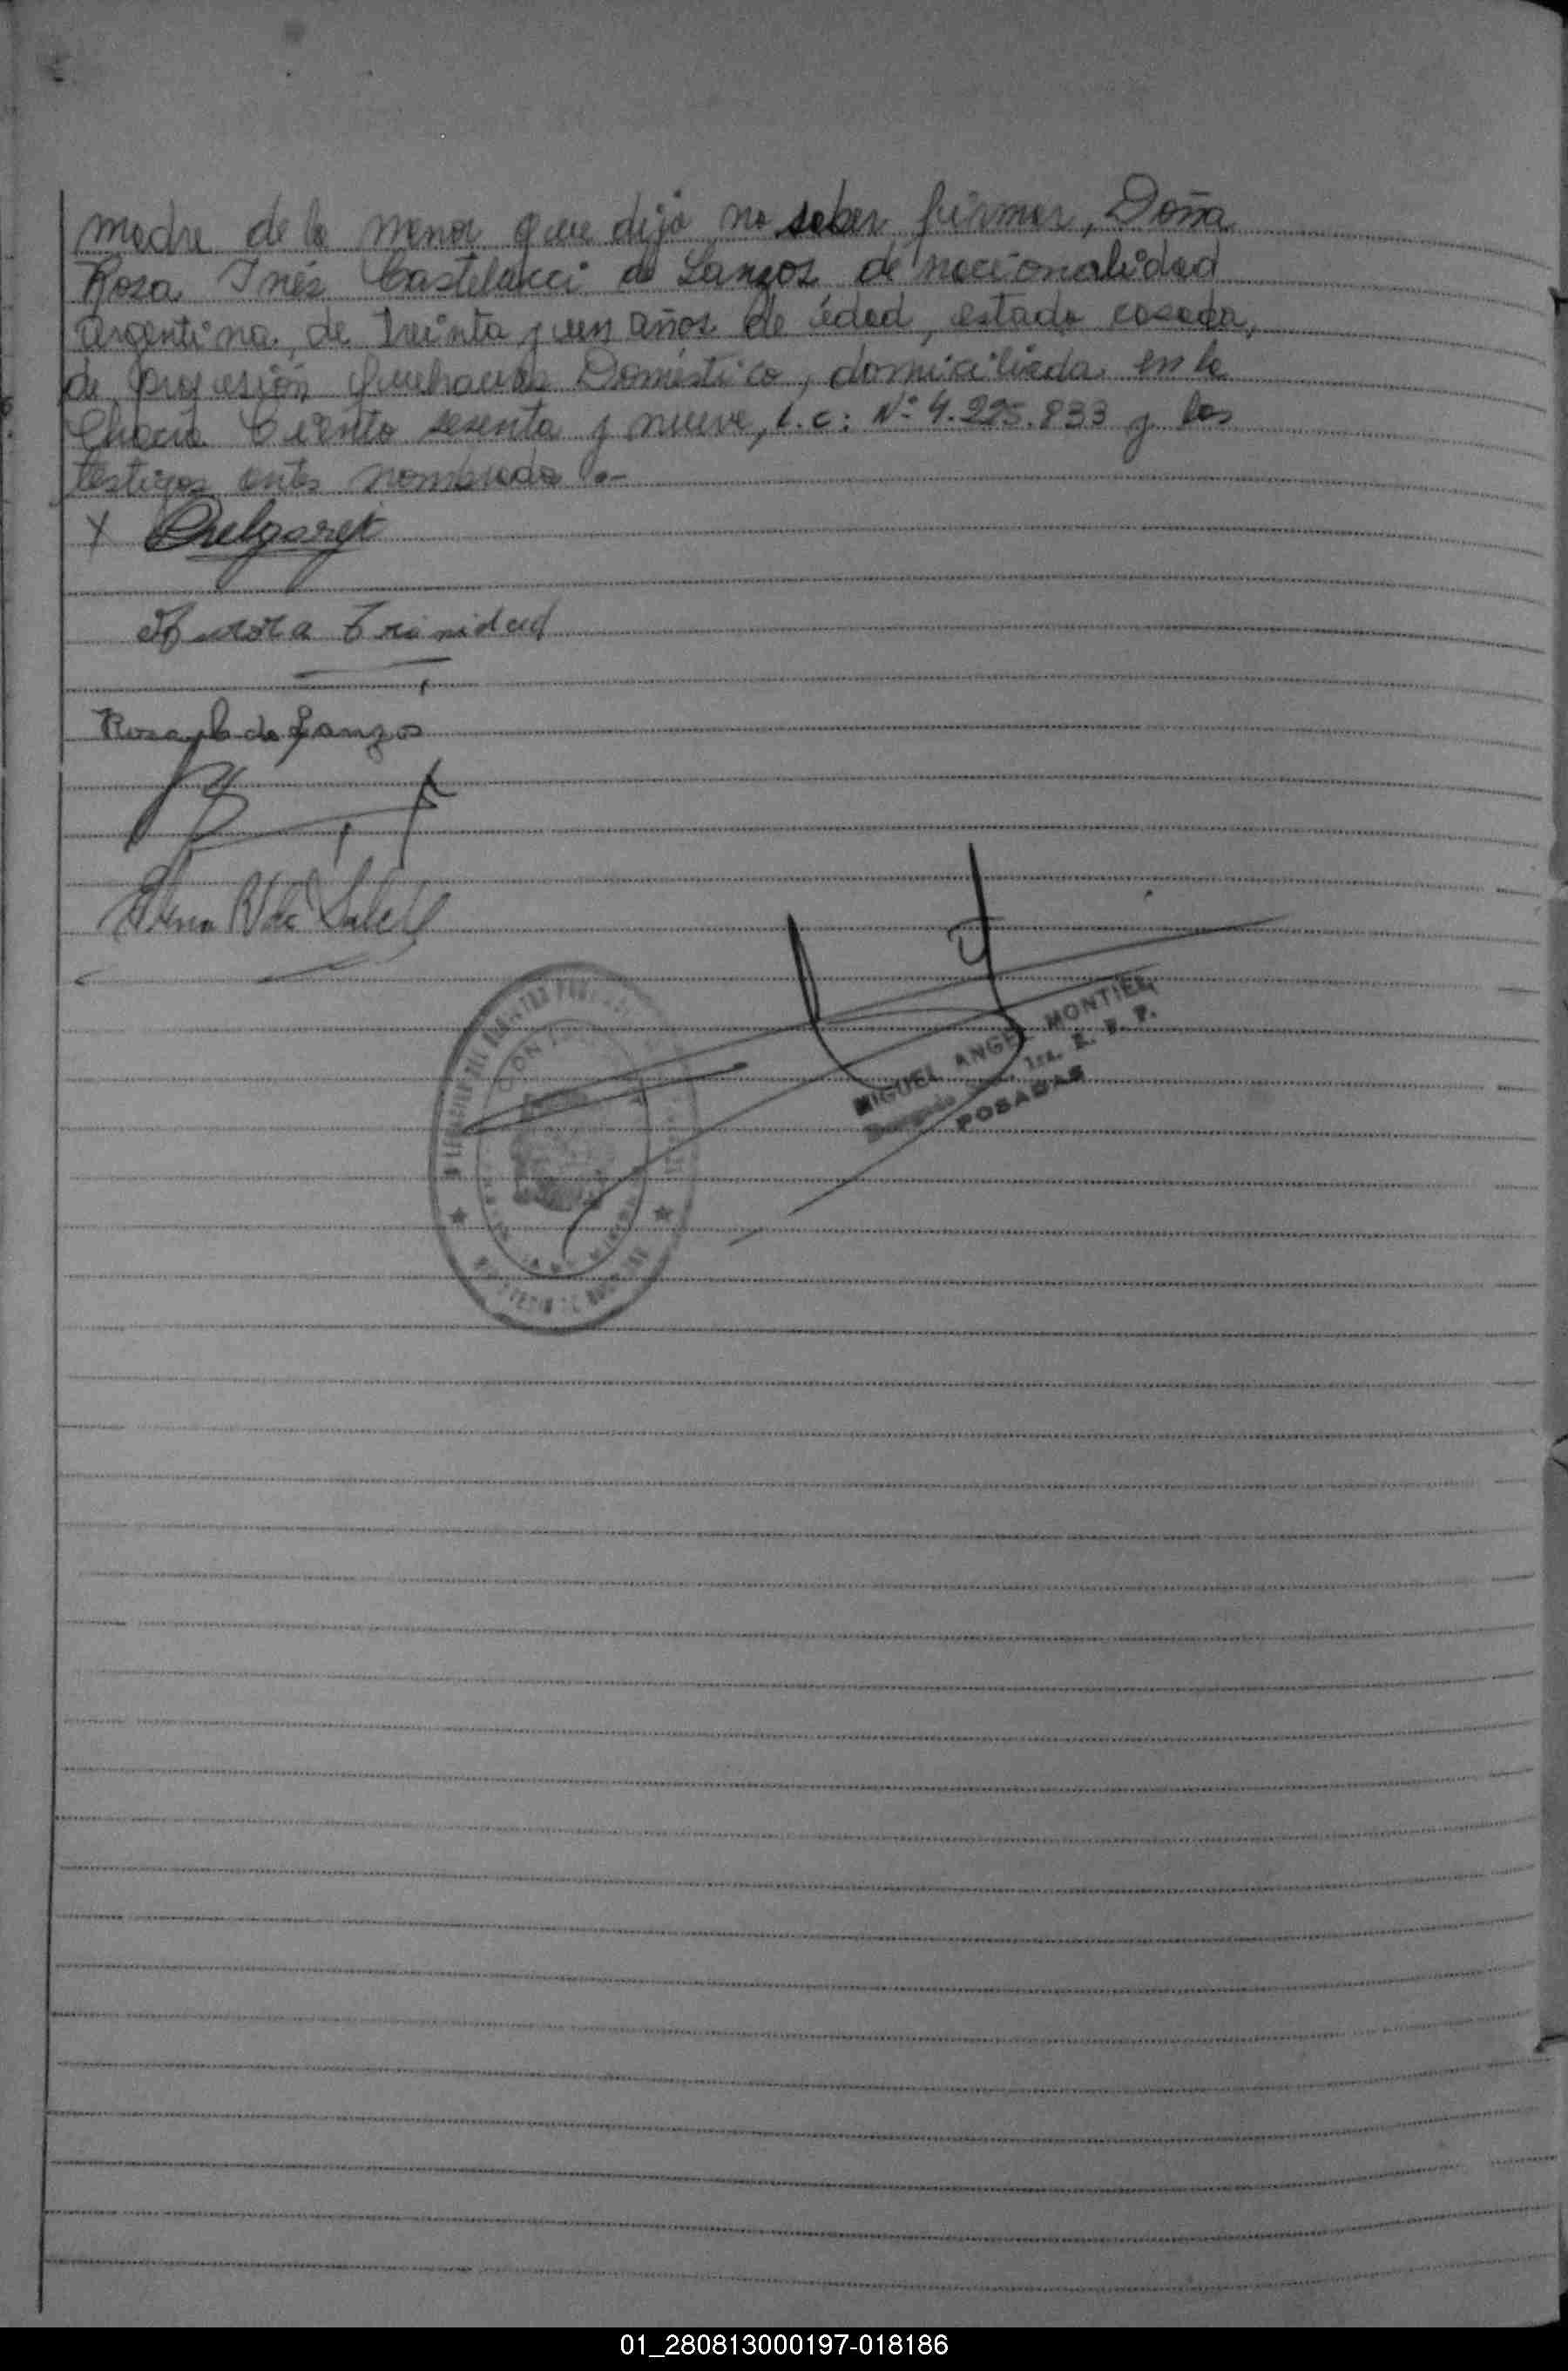 madre de la menor que dijo no saber firmar, Doña
Rosa Inés Castelacci de Lanzos de nacionalidad
argentina, de treinta y un años de edad, estado casada,
de profesión Quehacer Doméstico, domiciliada en la
Chacra Ciento sesenta y nueve, L.C: Nº 4.225.833 y los
testigos antes nombrados.-
X
Aurora Trinidad
Rosa de Lanzos
MIGUEL ANGEL MONTIEL
POSADAS
01_280813000197-018186